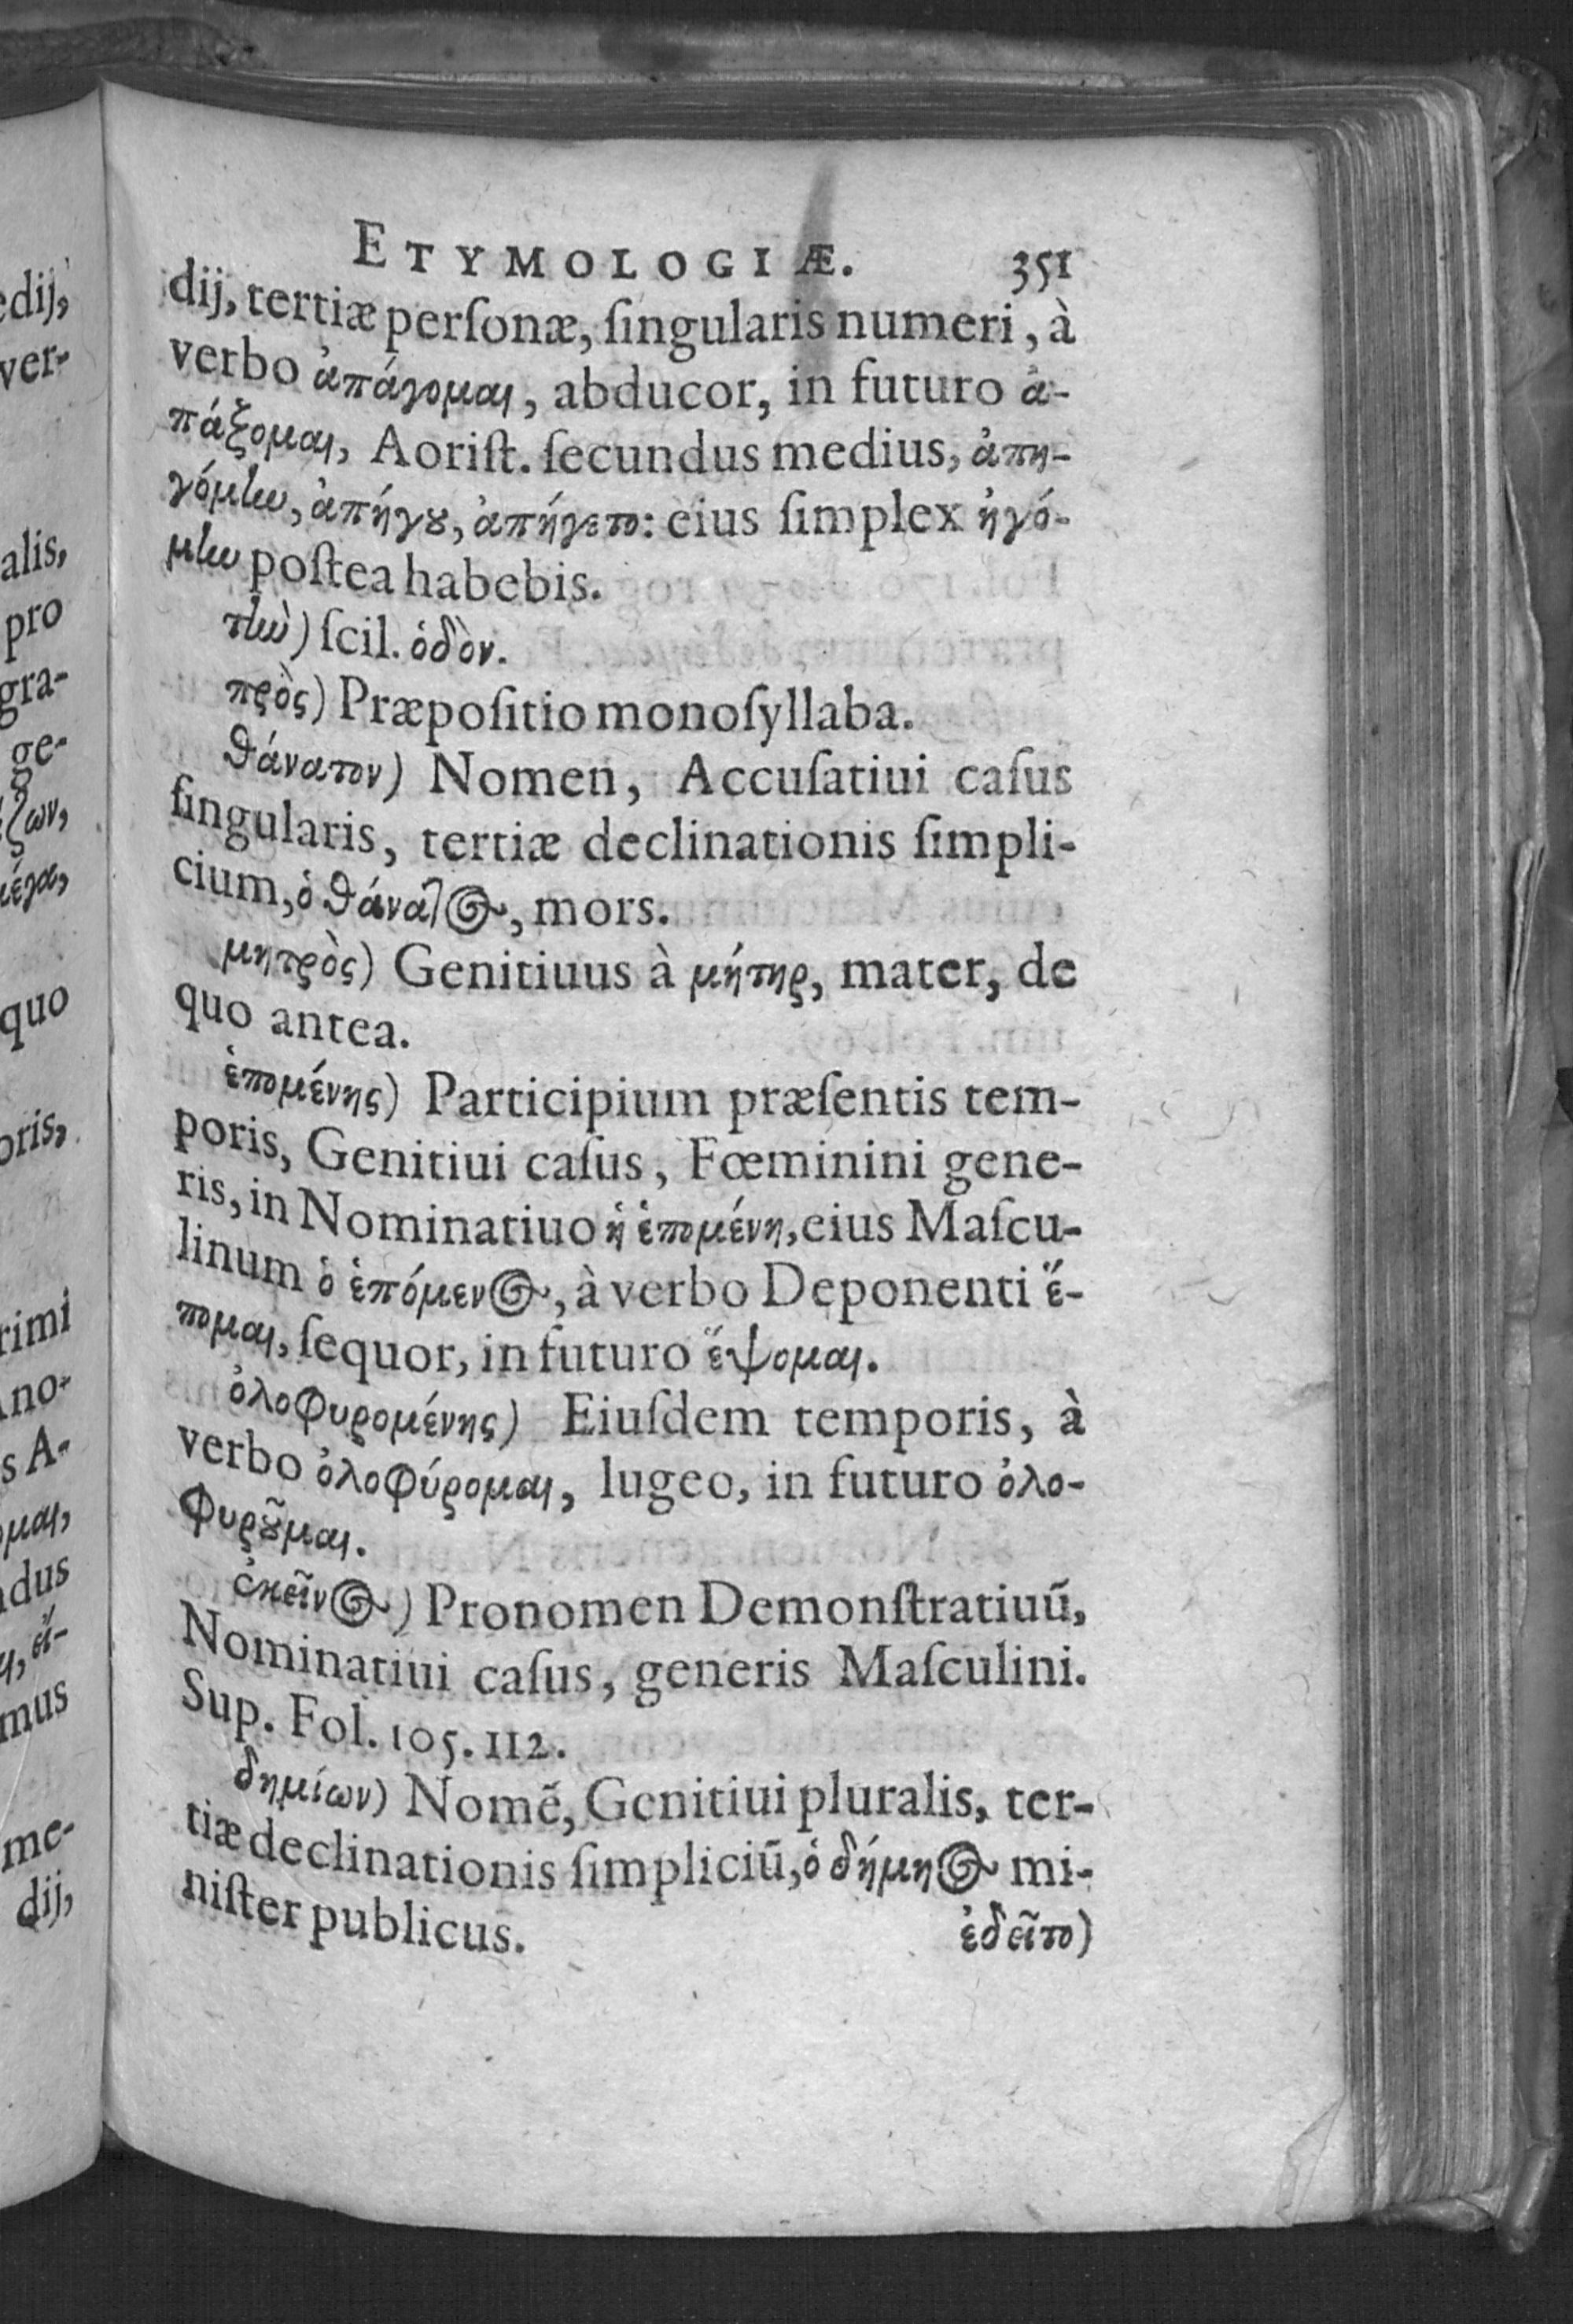 ETYMOLOGIÆ. 351
dij, tertiæ perſonæ, ſingularis numeri, à
verbo ἀπάγομαι, abducor, in futuro ἀ-
πάξομαι, Aoriſt. ſecundus medius, ἀπη-
γόμην, ἀπήγου, ἀπήγετο: eius ſimplex ἠγό-
μην poſtea habebis.
τὴν) ſcil. ὁδὸν.
πρὸς) Præpoſitio monoſyllaba.
θάνατον) Nomen, Accuſatiui caſus
ſingularis, tertiæ declinationis ſimpli-
cium, ὁ θάνατος, mors.
μητρὸς) Genitiuus à μήτηρ, mater, de
quo antea.
ἑπομένης) Participium præſentis tem-
poris, Genitiui caſus, Fœminini gene-
ris, in Nominatiuo ἡ ἑπομένη, eius Maſcu-
linum ὁ ἑπόμενος, à verbo Deponenti ἕ-
πομαι, ſequor, in futuro ἕψομαι.
ὀλοφυρομένης) Eiuſdem temporis, à
verbo ὀλοφύρομαι, lugeo, in futuro ὀλο-
φυροῦμαι.
ἐκεῖνος) Pronomen Demonſtratiuū,
Nominatiui caſus, generis Maſculini.
Sup. Fol. 105. 112.
δημίων) Nomē, Genitiui pluralis, ter-
tiæ declinationis ſimpliciū, ὁ δήμηος mi-
niſter publicus.
ἐδεῖτο)
edij,
ver-
alis,
pro
gra-
ge-
ζων,
μέγα,
quo
oris,
rimi
s A-
ομαι,
ndus
εἰ-
mus
me-
dij,